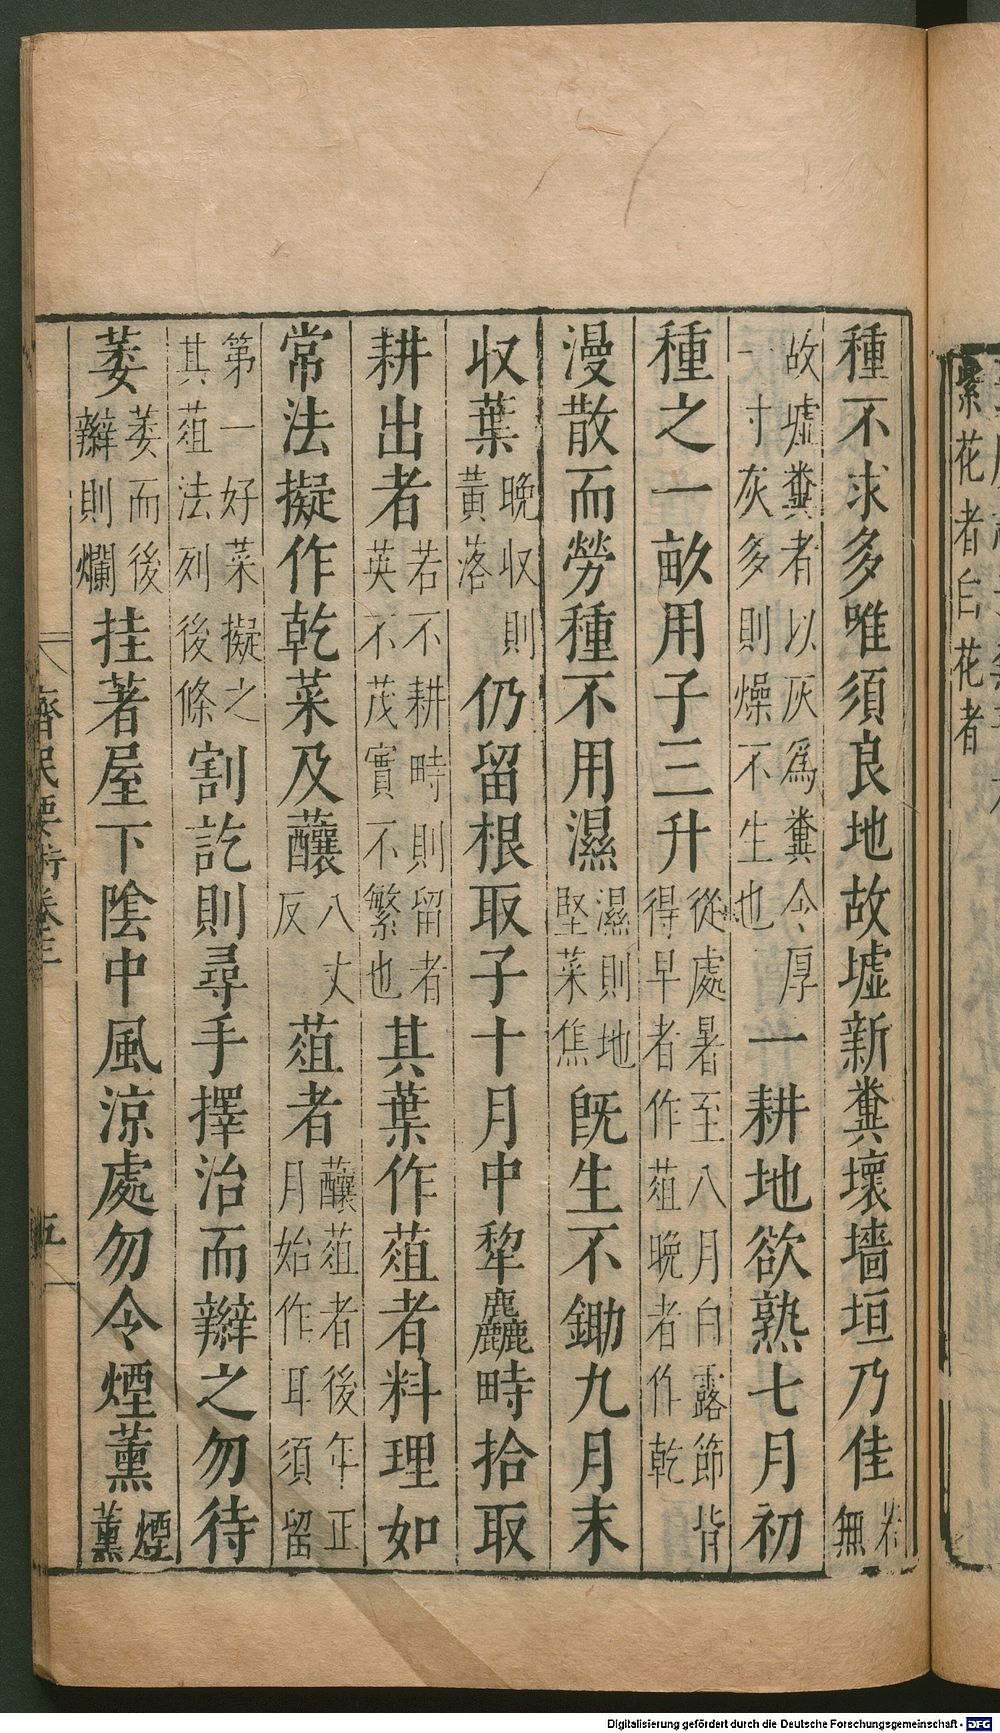 種不求多唯須良地故墟新糞壞墻垣乃佳若無
故墟糞者以灰爲糞令厚一寸灰多則燥不生也一耕地欲熟七月初
種之一畝用子三升從處暑至八月白露節皆得早者作葅晚者作乾
漫散而勞種不用濕濕則地堅菜焦旣生不鋤九月末
収葉晚収則黃落仍留根取子十月中犂麤畤拾取
耕出者若不耕畤則留者英不茂實不繁也其葉作葅者料理如
常法擬作乾菜及釀八丈反葅者釀葅者後年正月始作耳須留
第一好菜擬之其葅法列後條割訖則尋手擇治而辮之勿待
萎萎而後辮則爛挂著屋下陰中風涼處勿令煙薰煙薰
齊民要術卷三
五
紫花者白花者
Digitalisierung gefördert durch die Deutsche Forschungsgemeinschaft - DFG